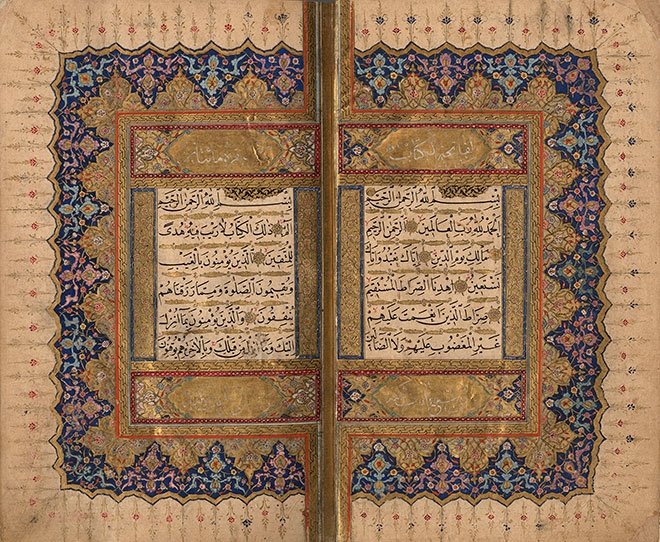 بِسْمِ اللهِ الرَّحْمٰنِ الرَّحِيمِ
اَلْحَمْدُ لِلهِ رَبِّ الْعَالَمِينَ الرَّحْمٰنِ الرَّحِيمِ
مَالِكِ يَوْمِ الدِّينِ اِيَّاكَ نَعْبُدُ وَاِيَّاكَ
نَسْتَعِينُ اِهْدِنَا الصِّرَاطَ الْمُسْتَقِيمَ
صِرَاطَ الَّذِينَ اَنْعَمْتَ عَلَيْهِمْ
غَيْرِ الْمَغْضُوبِ عَلَيْهِمْ وَلَا الضَّالِّينَ
بِسْمِ اللهِ الرَّحْمٰنِ الرَّحِيمِ
الٓمٓ ذٰلِكَ الْكِتَابُ لَا رَيْبَ فِيهِ هُدًى
لِلْمُتَّقِينَ الَّذِينَ يُؤْمِنُونَ بِالْغَيْبِ
وَيُقِيمُونَ الصَّلٰوةَ وَمِمَّا رَزَقْنَاهُمْ
يُنْفِقُونَ وَالَّذِينَ يُؤْمِنُونَ بِمَا اُنْزِلَ
اِلَيْكَ وَمَا اُنْزِلَ مِنْ قَبْلِكَ وَبِالْاٰخِرَةِ هُمْ يُوقِنُونَ